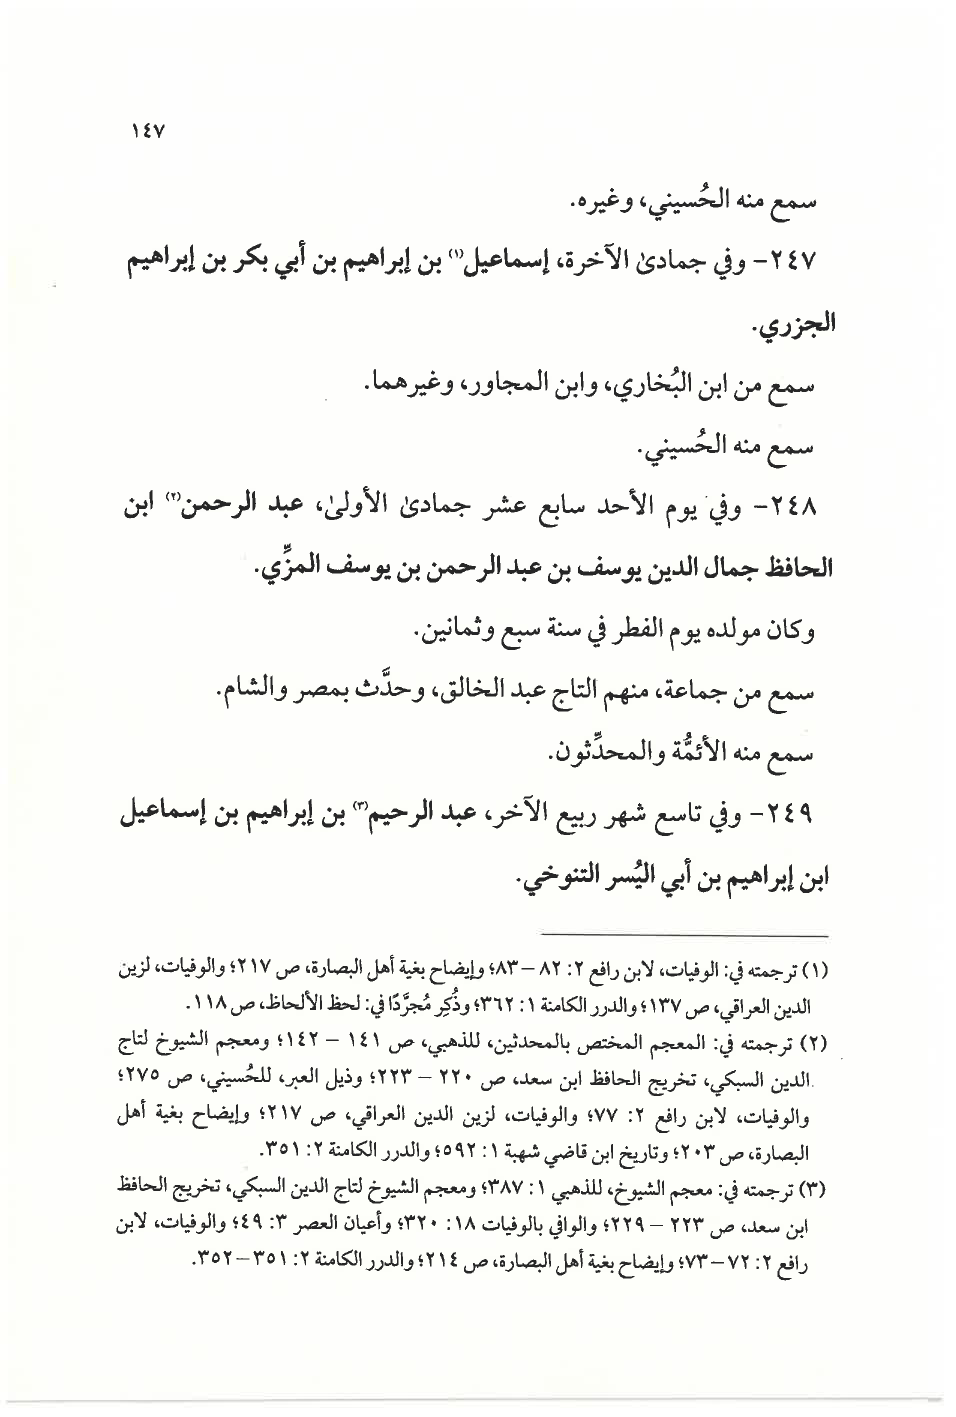 ١٤٧
سمع منه الحُسيني، وغيره.
٢٤٧- وفي جمادىٰ الآخرة، إسماعيل(١) بن إبراهيم بن أبي بكر بن إبراهيم
الجزري.
سمع من ابن البُخاري، وابن المجاور، وغيرهما.
سمع منه الحُسيني.
٢٤٨- وفي يوم الأحد سابع عشر جمادىٰ الأولىٰ، عبد الرحمن(٢) ابن
الحافظ جمال الدين يوسف بن عبد الرحمن بن يوسف المزِّي.
وكان مولده يوم الفطر في سنة سبع وثمانين.
سمع من جماعة، منهم التاج عبد الخالق، وحدَّث بمصر والشام.
سمع منه الأئمَّة والمحدِّثون.
٢٤٩- وفي تاسع شهر ربيع الآخر، عبد الرحيم(٣) بن إبراهيم بن إسماعيل
ابن إبراهيم بن أبي اليُسر التنوخي.
(١) ترجمته في: الوفيات، لابن رافع ٢: ٨٢-٨٣؛ وإيضاح بغية أهل البصارة، ص ٢١٧؛ والوفيات، لزين
الدين العراقي، ص ١٣٧؛ والدرر الكامنة ١: ٣٦٢؛ وذُكِر مُجرَّدًا في: لحظ الألحاظ، ص ١١٨.
(٢) ترجمته في: المعجم المختص بالمحدثين، للذهبي، ص ١٤١ - ١٤٢؛ ومعجم الشيوخ لتاج
الدين السبكي، تخريج الحافظ ابن سعد، ص ٢٢٠ - ٢٢٣؛ وذيل العبر، للحُسيني، ص ٢٧٥؛
والوفيات، لابن رافع ٢: ٧٧؛ والوفيات، لزين الدين العراقي، ص ٢١٧؛ وإيضاح بغية أهل
البصارة، ص ٢٠٣؛ وتاريخ ابن قاضي شهبة ١: ٥٩٢؛ والدرر الكامنة ٢: ٣٥١.
(٣) ترجمته في: معجم الشيوخ، للذهبي ١: ٣٨٧؛ ومعجم الشيوخ لتاج الدين السبكي، تخريج الحافظ
ابن سعد، ص ٢٢٣ - ٢٢٩؛ والوافي بالوفيات ١٨: ٣٢٠؛ وأعيان العصر ٣: ٤٩؛ والوفيات، لابن
رافع ٢: ٧٢-٧٣؛ وإيضاح بغية أهل البصارة، ص ٢١٤؛ والدرر الكامنة ٢: ٣٥١-٣٥٢.